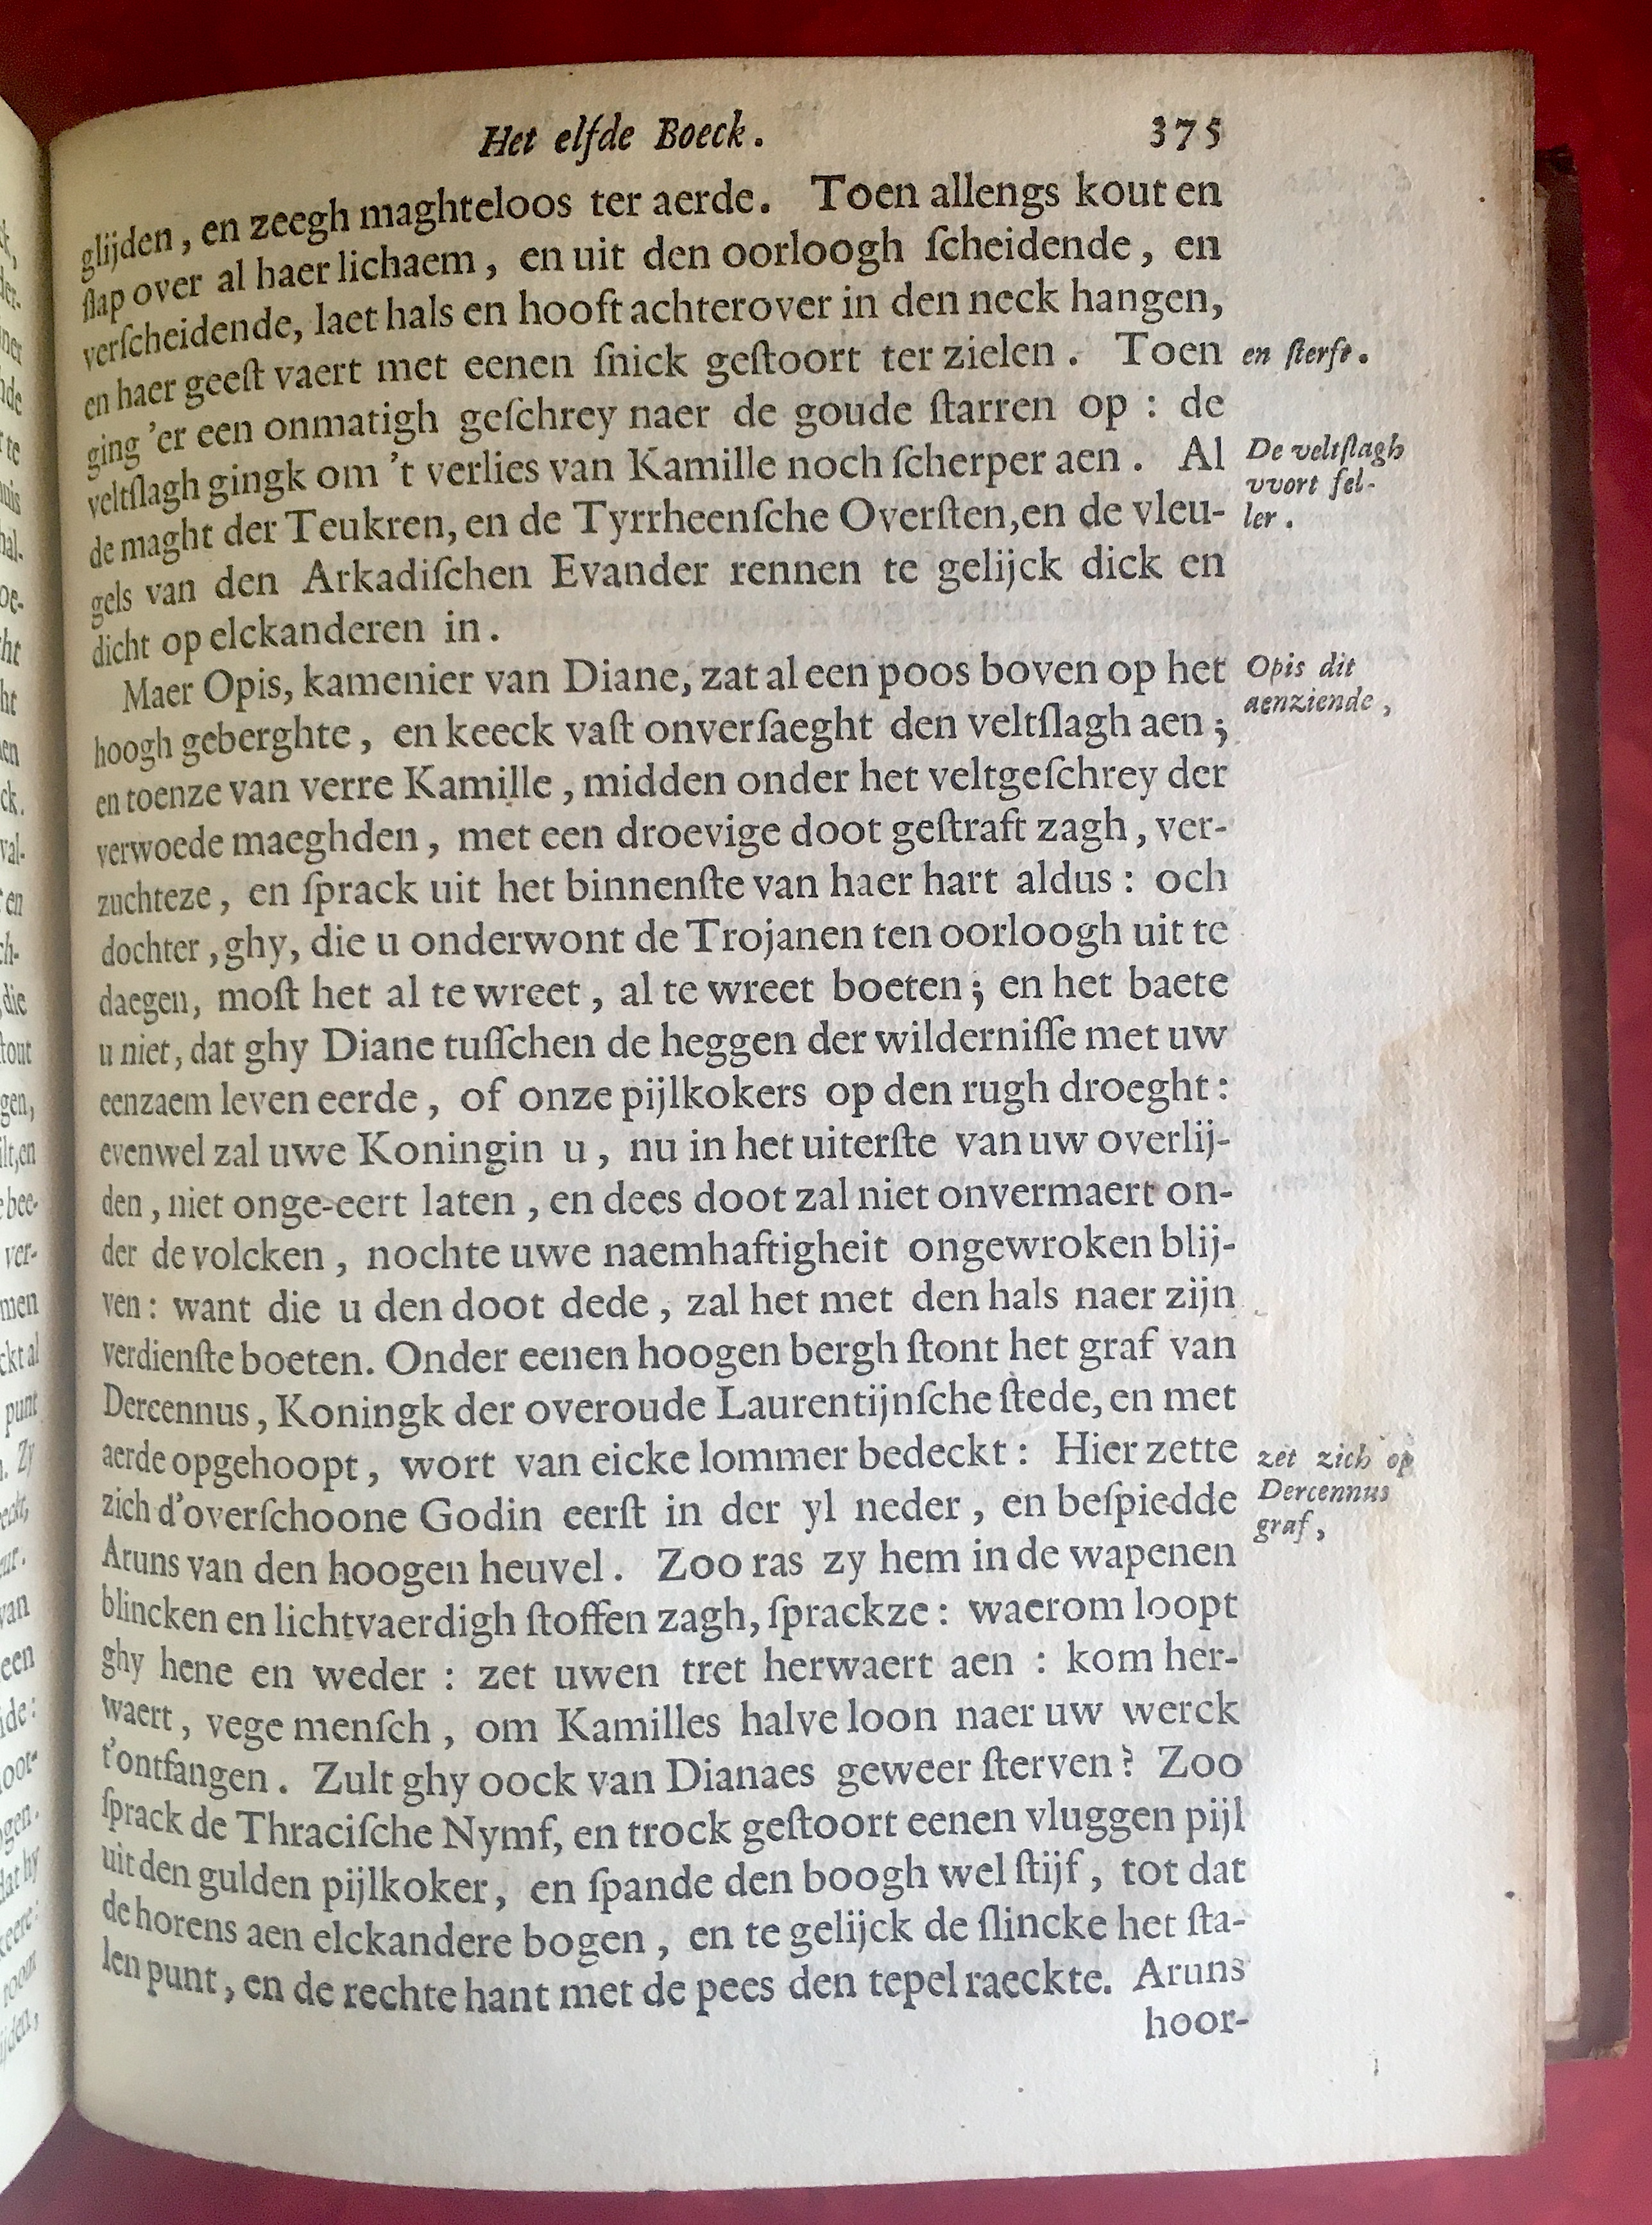 Het elfde Boeck. 375
glijden, en zeegh maghteloos ter aerde. Toen allengs kout en
ſlap over al haer lichaem, en uit den oorloogh ſcheidende, en
verſcheidende, laet hals en hooft achterover in den neck hangen,
en haer geeſt vaert met eenen ſnick geſtoort ter zielen. Toen
en ſterft.
ging 'er een onmatigh geſchrey naer de goude ſtarren op : de
veltſlagh gingk om 't verlies van Kamille noch ſcherper aen. Al
De veltſlagh
vvort fel-
ler.
de maght der Teukren, en de Tyrrheenſche Overſten, en de vleu-
gels van den Arkadiſchen Evander rennen te gelijck dick en
dicht op elckanderen in.
Maer Opis, kamenier van Diane, zat al een poos boven op het
Opis dit
aenziende,
hoogh geberghte, en keeck vaſt onverſaeght den veltſlagh aen;
en toenze van verre Kamille, midden onder het veltgeſchrey der
verwoede maeghden, met een droevige doot geſtraft zagh, ver-
zuchteze, en ſprack uit het binnenſte van haer hart aldus: och
dochter, ghy, die u onderwont de Trojanen ten oorloogh uit te
daegen, moſt het al te wreet, al te wreet boeten; en het baete
u niet, dat ghy Diane tuſſchen de heggen der wilderniſſe met uw
eenzaem leven eerde, of onze pijlkokers op den rugh droeght:
evenwel zal uwe Koningin u, nu in het uiterſte van uw overlij-
den, niet onge-eert laten, en dees doot zal niet onvermaert on-
der de volcken, nochte uwe naemhaftigheit ongewroken blij-
ven: want die u den doot dede, zal het met den hals naer zijn
verdienſte boeten. Onder eenen hoogen bergh ſtont het graf van
Dercennus, Koningk der overoude Laurentijnſche ſtede, en met
aerde opgehoopt, wort van eicke lommer bedeckt: Hier zette
zet zich op
Dercennus
graf,
zich d'overſchoone Godin eerſt in der yl neder, en beſpiedde
Aruns van den hoogen heuvel. Zoo ras zy hem in de wapenen
blincken en lichtvaerdigh ſtoffen zagh, ſprackze: waerom loopt
ghy hene en weder : zet uwen tret herwaert aen : kom her-
waert, vege menſch, om Kamilles halve loon naer uw werck
t'ontfangen. Zult ghy oock van Dianaes geweer ſterven? Zoo
ſprack de Thraciſche Nymf, en trock geſtoort eenen vluggen pijl
uit den gulden pijlkoker, en ſpande den boogh wel ſtijf, tot dat
de horens aen elckandere bogen, en te gelijck de ſlincke het ſta-
len punt, en de rechte hant met de pees den tepel raeckte. Aruns
hoor-